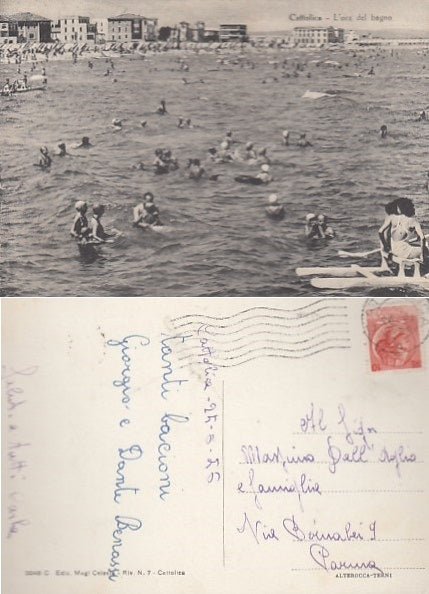 Cattolica - L'ora del bagno
Cattolica - 25-8-55
tanti bacioni
Giorgio e Dante Benassi
Saluti a tutti
Al Sign
Massimo Dall'Aglio
e famiglia
Via Boinabei 9
Parma
Ediz. Magi Celeste - Riv. N. 7 - Cattolica
ALTEROCCA-TERNI